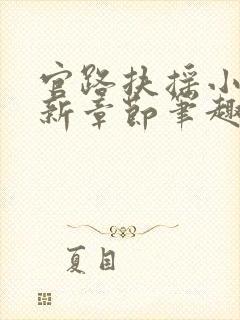 官路扶摇小
新章节笔趣
夏目